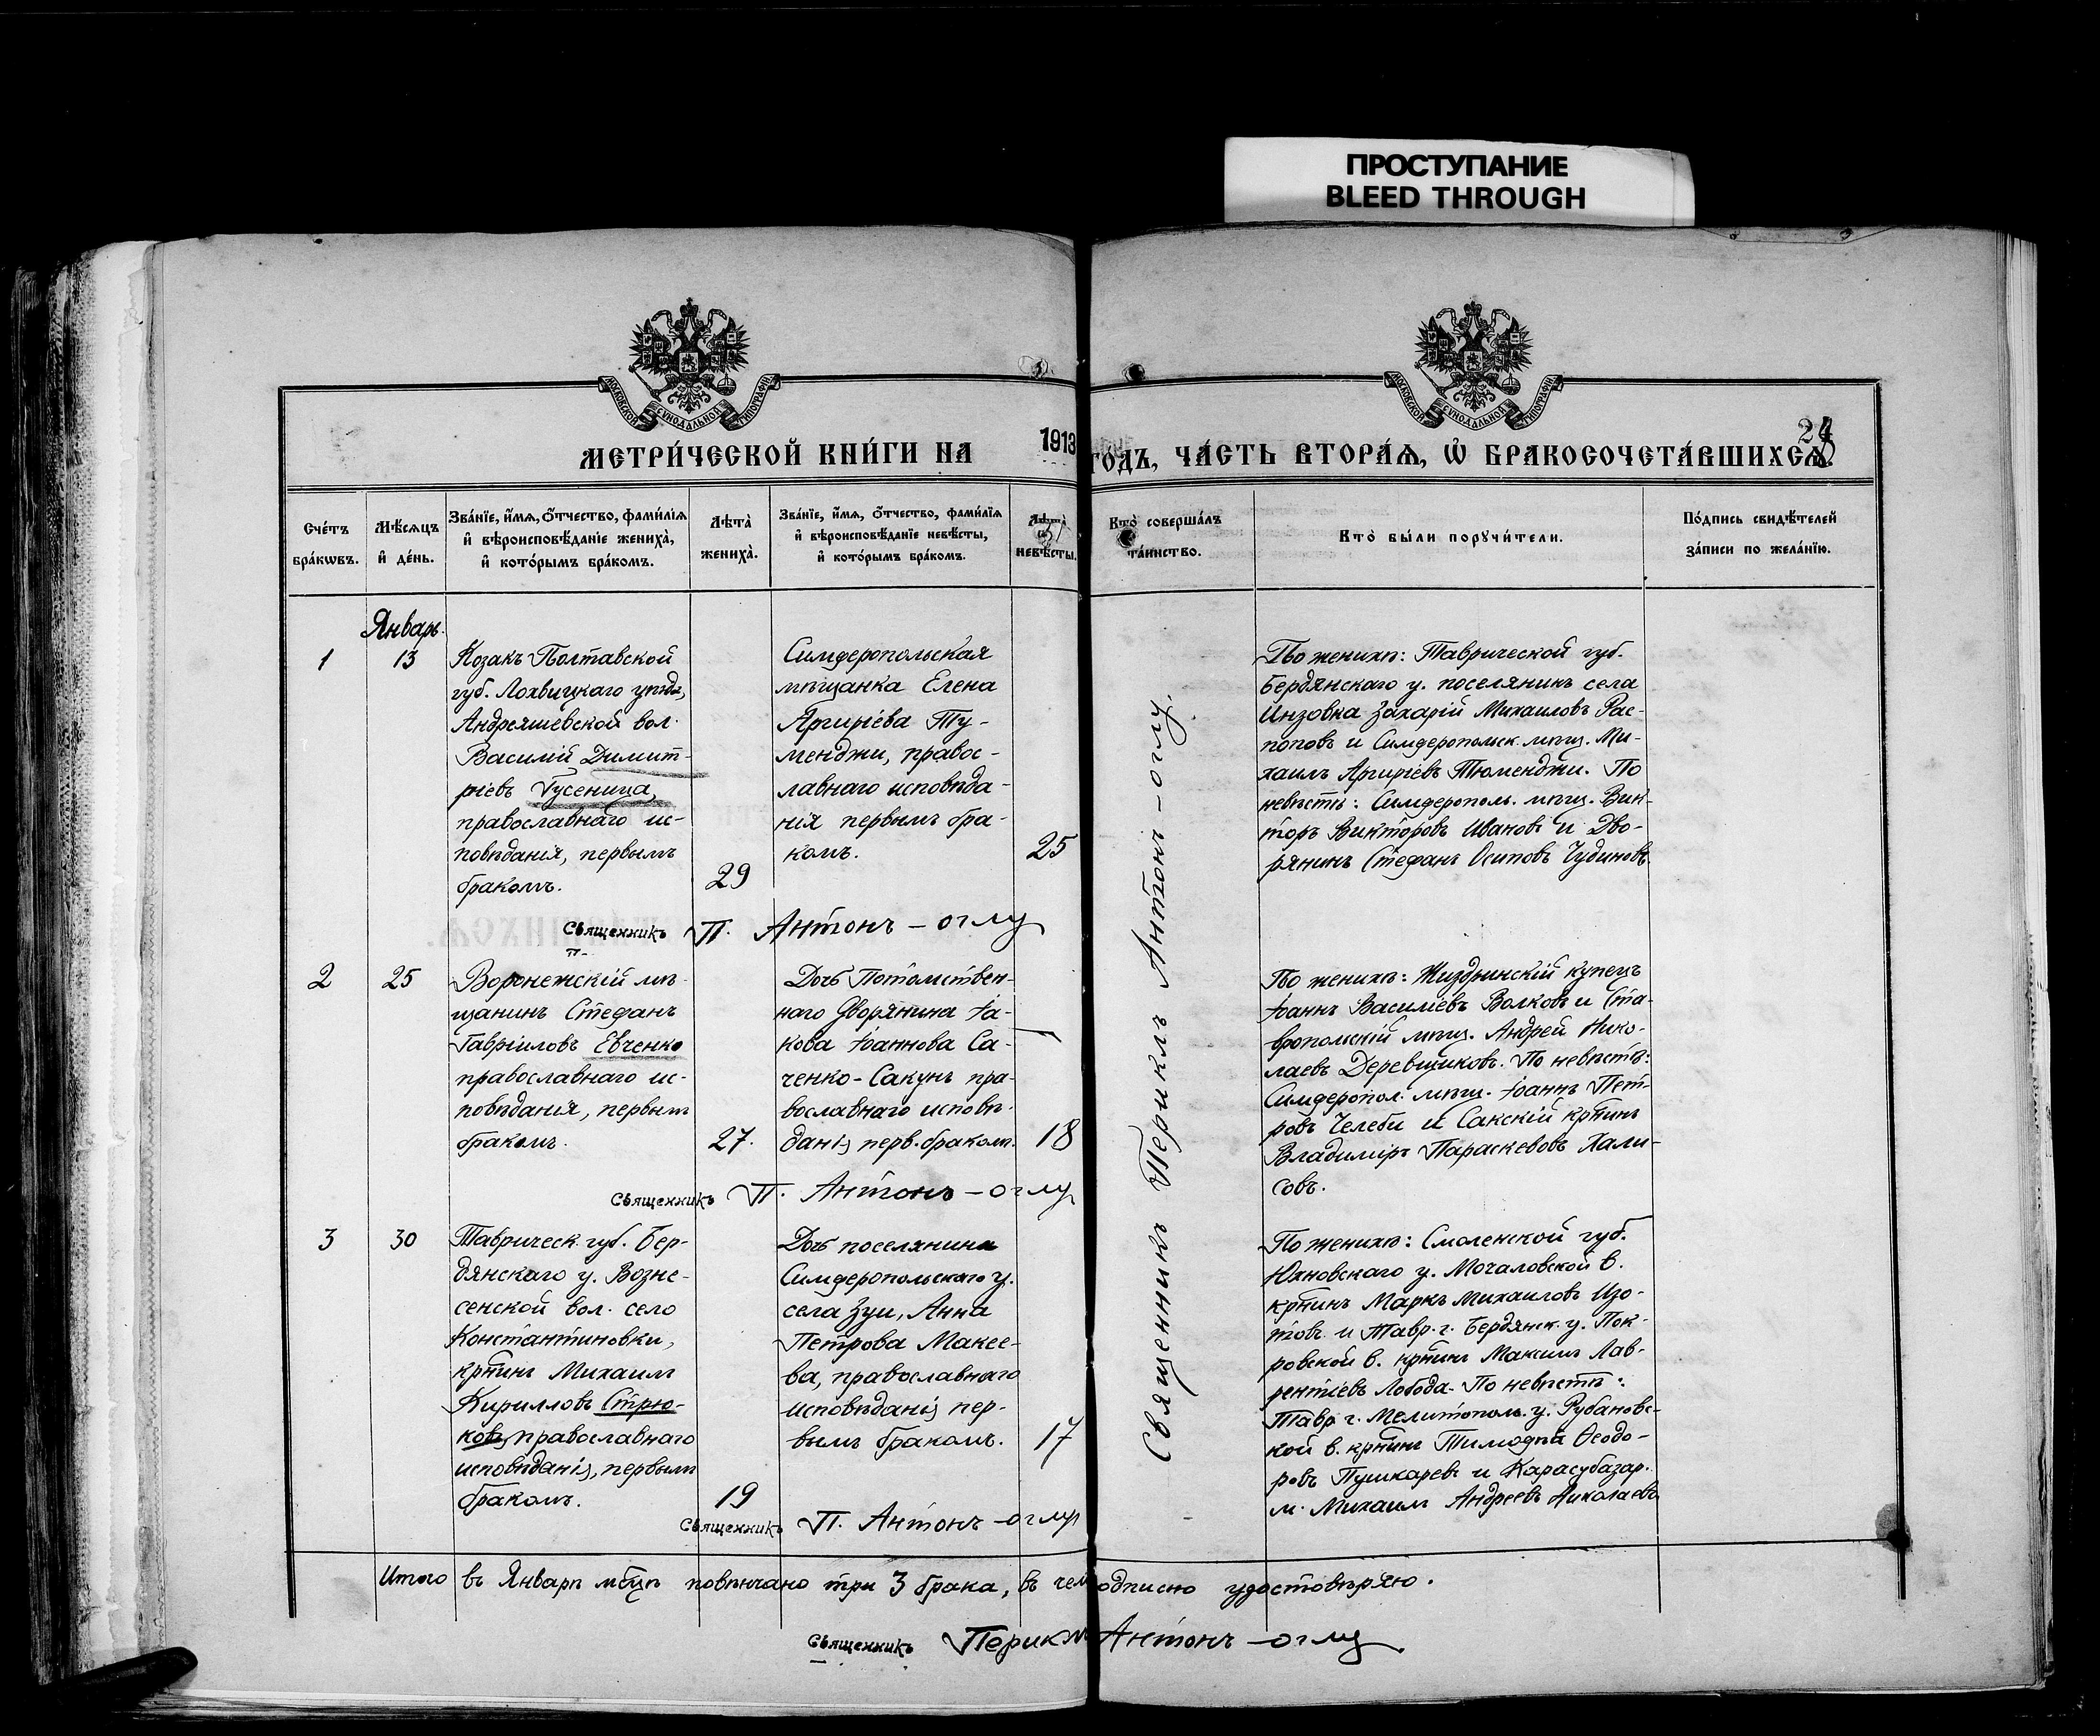 ПРОСТУПАНИЕ
BLEED THROUGH
МОСКОВСКОЙ СѴНОДАЛЬНОЙ ТИПОГРАФІИ
МОСКОВСКОЙ СѴНОДАЛЬНОЙ ТИПОГРАФІИ
МЕТРИ́ЧЕСКОЙ КНИ́ГИ НА 1913 ГОДЪ, ЧА́СТЬ ВТОРА́Я, Ѡ БРАКОСОЧЕТА́ВШИХСЯ.
Сче́тъ бра́кѡвъ.
Мѣ́сяцъ и де́нь.
Зва́нїе, и́мя, о́тчество, фами́лїя
и вѣроисповѣ́данїе жениха̀,
и кото́рымъ бра́комъ.
Лѣта̀ жениха̀.
Зва́нїе, и́мя, о́тчество, фами́лїя
и вѣроисповѣ́данїе невѣ́сты,
и кото́рымъ бра́комъ.
Лѣта̀ невѣ́сты.
Кто̀ соверша́лъ та́инство.
Кто̀ бы́ли поручи́тели.
По́дпись свидѣ́телей
за́писи по жела́нїю.
Январь
1
13
Козакъ Полтавской
губ. Лохвицкаго уѣзда,
Андреяшевской вол.
Василій Димит-
ріевъ Гусеница,
православнаго ис-
повѣданія, первымъ
бракомъ.
29
Симферопольская
мѣщанка Елена
Аргиріева Ту-
менджи, правос-
лавнаго исповѣда-
нія первымъ бра-
комъ.
25
По женихѣ: Таврической губ.
Бердянскаго у. поселянинъ села
Инзовка Захарій Михаиловъ Рас-
поповъ и Симферопольск. мѣщ. Ми-
хаилъ Аргиріевъ Тюменджи. По
невѣстѣ: Симферопол. мѣщ. Вик-
торъ Викторовъ Ивановъ и Дво-
рянинъ Стефанъ Осиповъ Чудиновъ
Священникъ П. Антонъ-оглу
2
25
Воронежскій мѣ-
щанинъ Стефанъ
Гавріиловъ Евченко
православнаго ис-
повѣданія, первымъ
бракомъ.
27.
Дочь Потомствен-
наго Дворянина Іа-
кова Іоаннова Са-
ченко-Сакунъ пра-
вославнаго исповѣ-
данія перв. бракомъ.
18
По женихѣ: Жиздринскій купецъ
Іоаннъ Василіевъ Волковъ и Ста-
вропольскій мѣщ. Андрей Нико-
лаевъ Деревщиковъ. По невѣстѣ:
Симферопол. мѣщ. Іоаннъ Пет-
ровъ Челеби и Сакскій крт̃инъ
Владиміръ Параскевовъ Хали-
совъ.
Священникъ П. Антонъ-оглу
3
30
Таврическ. губ. Бер-
дянскаго у. Возне-
сенской вол. село
Константиновки,
крт̃инъ Михаилъ
Кирилловъ Стрю-
ковъ, православнаго
исповѣданія, первымъ
бракомъ.
19
Дочь поселянина
Симферопольскаго у.
села Зуи, Анна
Петрова Макее-
ва, православнаго
исповѣданія пер-
вымъ бракомъ.
17
По женихѣ: Смоленской губ.
Юхновскаго у. Мочаловской в.
крт̃инъ Маркъ Михаиловъ Изо-
товъ и Тавр. г. Бердянск. у. Пок-
ровской в. крт̃инъ Максимъ Лав-
рентіевъ Лобода. По невѣстѣ:
Тавр. г. Мелитопол. у. Рубановс-
кой в. крт̃инъ Тимофей Ѳеодо-
ровъ Пушкаревъ и Карасубазар.
м. Михаилъ Андреевъ Николаевъ
Священникъ П. Антонъ-оглу
Священникъ Периклъ Антонъ-оглу.
Итого въ Январѣ мѣсяцѣ повѣнчано три 3 брака, въ чемъ подписью удостовѣряю.
Священникъ Периклъ Антонъ-оглу